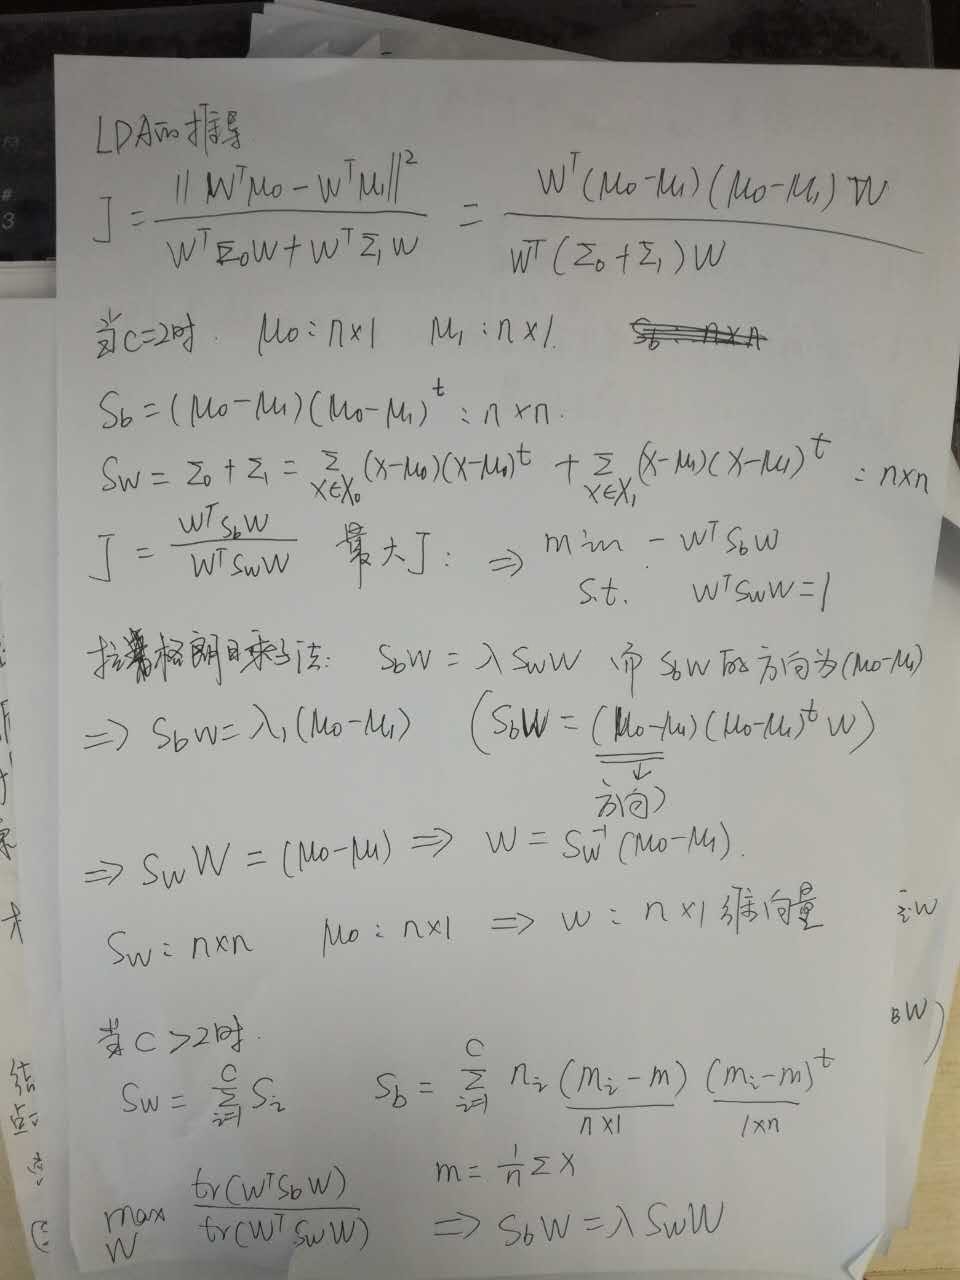 LDA的推导
J = ||W^T μ0 - W^T μ1||^2 / (W^T Σ0 W + W^T Σ1 W) = W^T (μ0-μ1)(μ0-μ1) W / (W^T (Σ0+Σ1) W)
当C=2时. μ0: n×1 μ1: n×1. Sb: n×n
Sb = (μ0-μ1)(μ0-μ1)^t : n×n.
Sw = Σ0 + Σ1 = Σ_{X∈X0} (X-μ0)(X-μ0)^t + Σ_{X∈X1} (X-μ1)(X-μ1)^t : n×n
J = W^T Sb W / (W^T Sw W) 最大J: ⇒ min - W^T Sb W
s.t. W^T Sw W = 1
拉格朗日乘子法: SbW = λ SwW 而 SbW 的方向为(μ0-μ1)
⇒ SbW = λ1(μ0-μ1) (SbW = (μ0-μ1)(μ0-μ1)^t W)
↓
方向)
⇒ SwW = (μ0-μ1) ⇒ W = Sw^-1 (μ0-μ1).
Sw: n×n μ0: n×1 ⇒ W: n×1 维向量
当C>2时.
Sw = Σ_{i=1}^{C} Si Sb = Σ_{i=1}^{C} ni (mi-m) (mi-m)^t
n×1 1×n
m = 1/n Σ X
max_W tr(W^T Sb W) / tr(W^T Sw W) ⇒ SbW = λ SwW